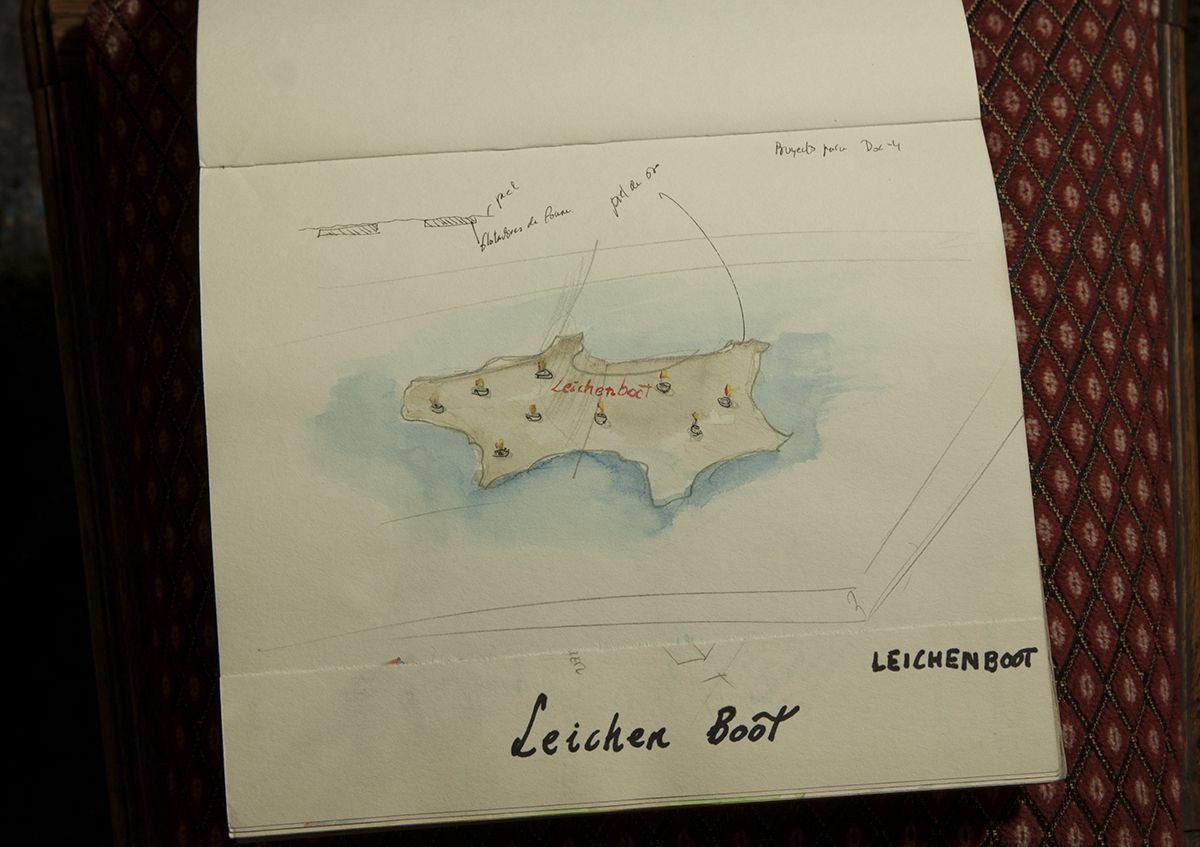 Proyecto para Doc-4
piel
flotadores de foam
piel de
Leichenboot
LEICHENBOOT
Leichen Boot